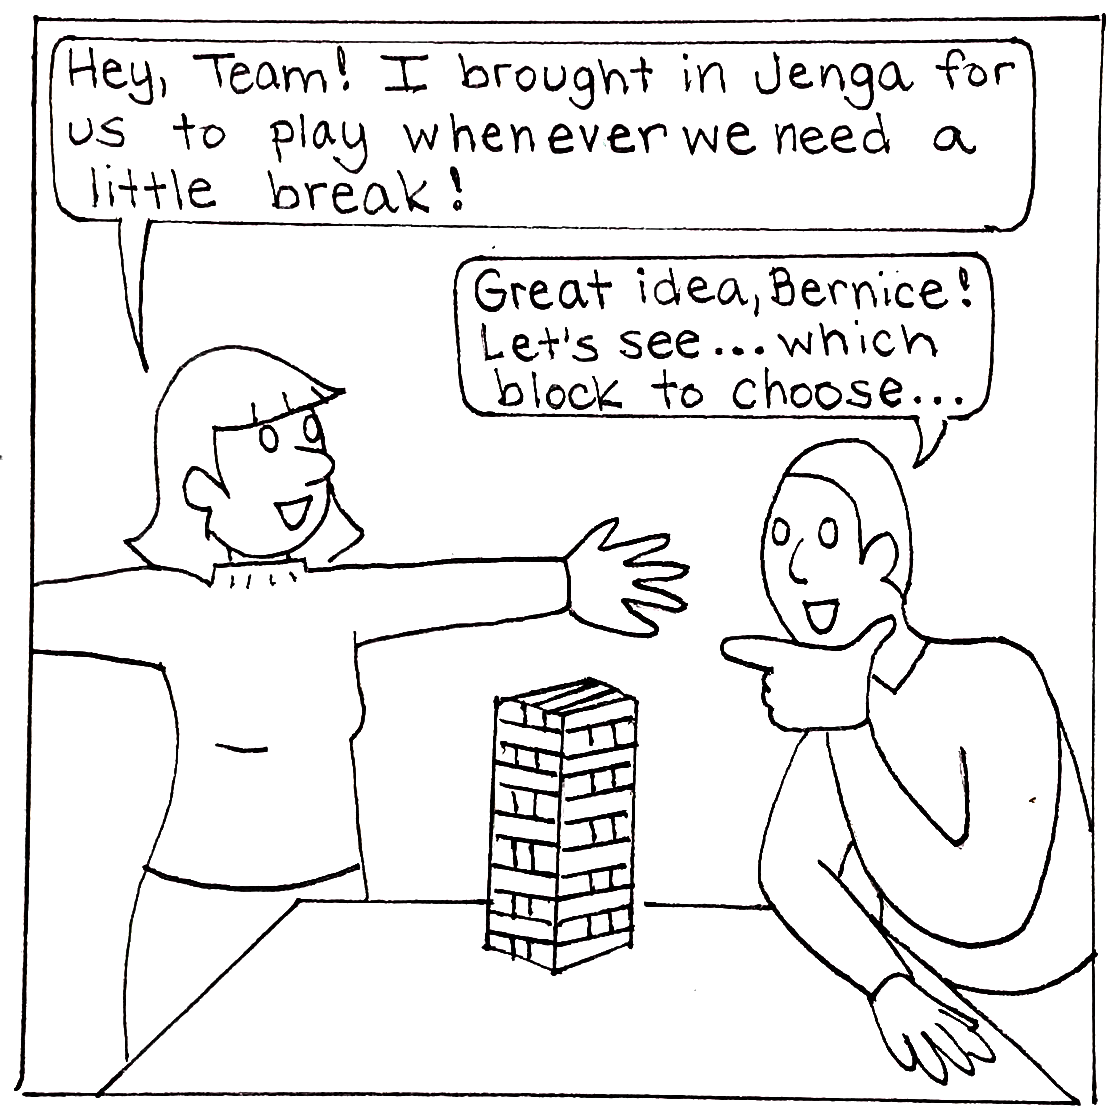 Hey, Team! I brought in Jenga for
us to play whenever we need a
little break!
Great idea, Bernice!
Let's see...which
block to choose...